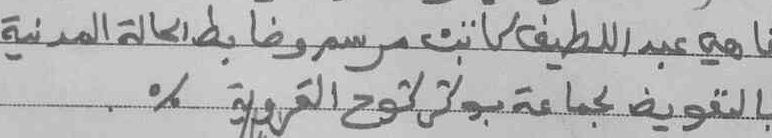 ناهي عبد اللطيف كاتب مرسم وضابط الحالة المدنية
بالتفويض لجماعة بوكركوح القروية ./.